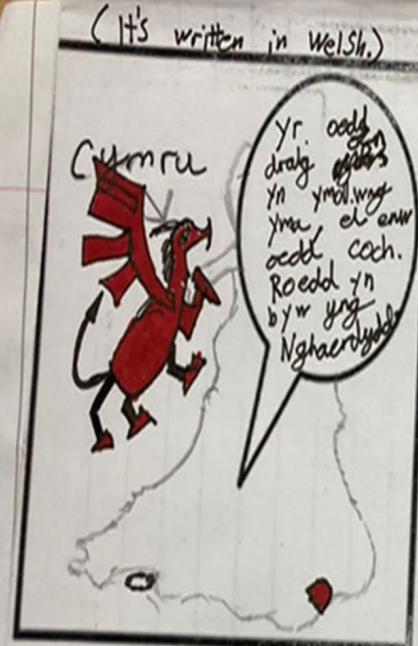 (It's written in Welsh.)
Cymru
Yr oedd
draig
yn
yma, ei enw
oedd coch.
Roedd yn
byw yng
Nghaerdydd.